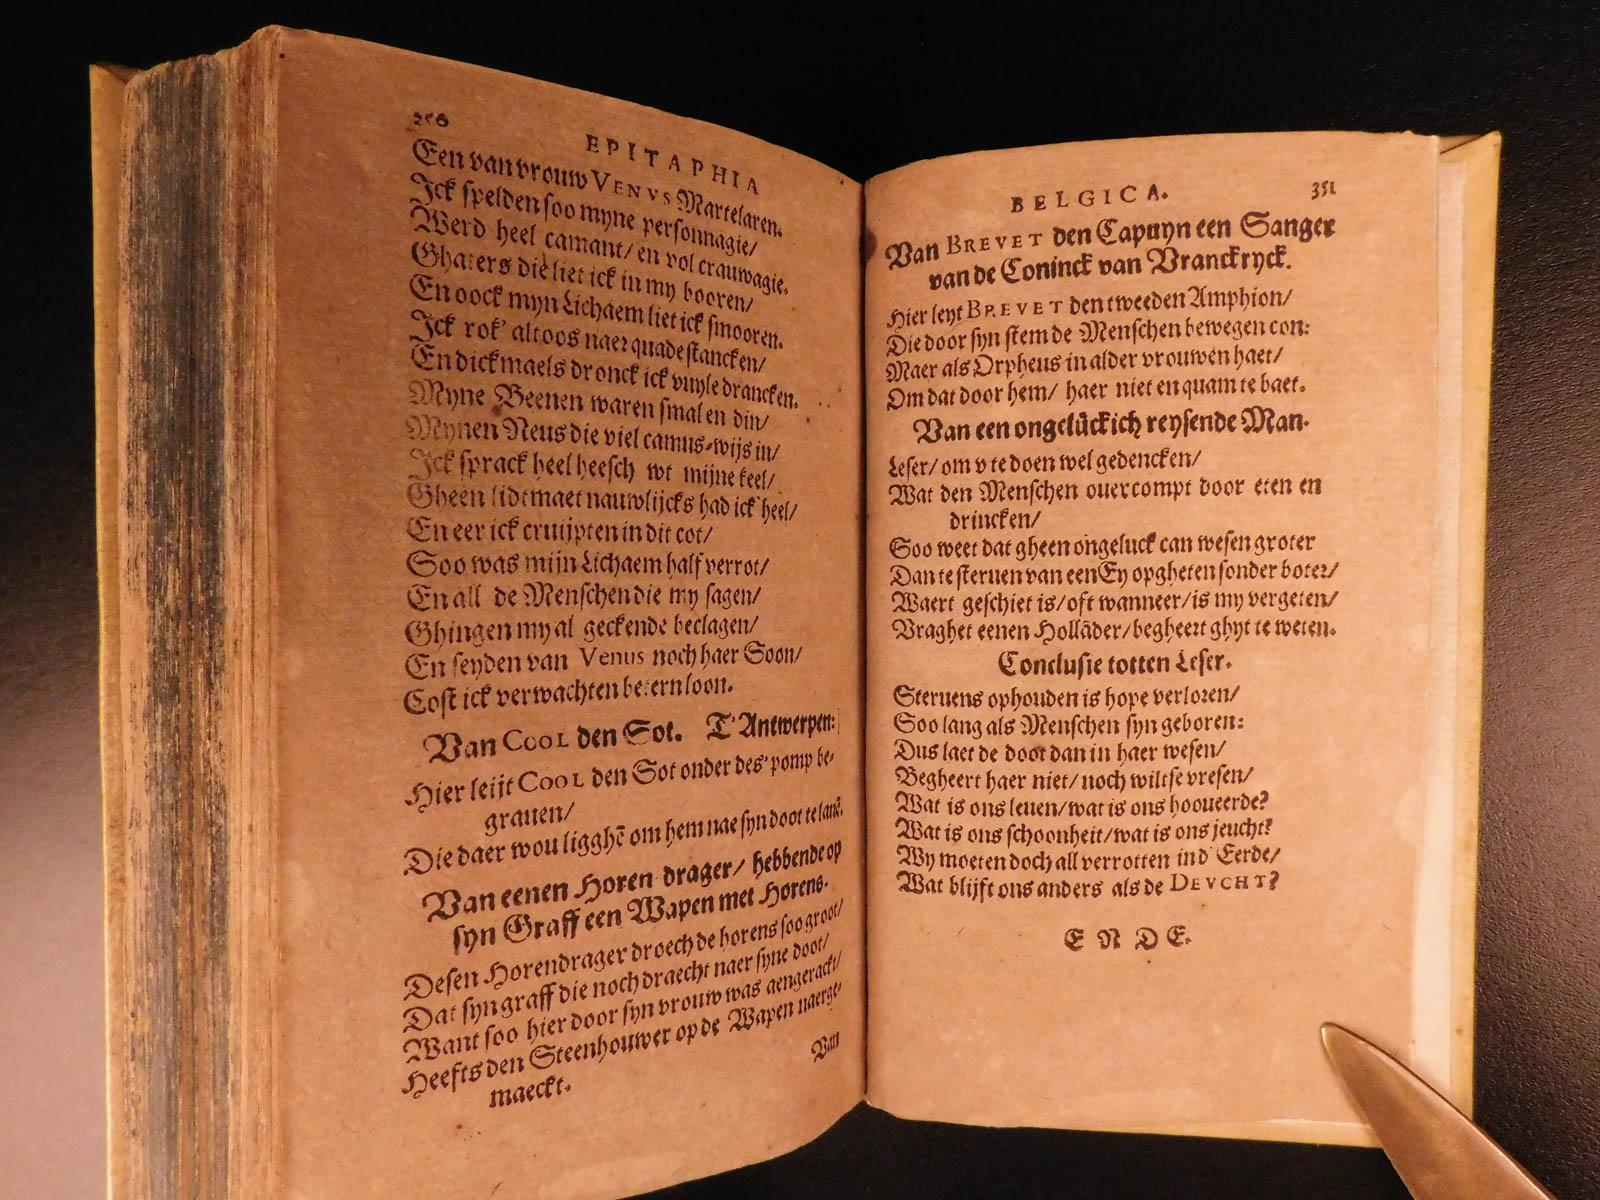 350
EPITAPHIA
Een van vrouw VENVS Martelaren.
Ick spelden soo myne personnagie/
Werd heel camant/ en vol crauwagie.
Ghaters die liet ick in my booren/
En oock myn Lichaem liet ick smooren.
Ick rok' altoos naer quade stancken/
En dickmaels dronck ick vuyle drancken.
Myne Beenen waren smal en din/
Mynen Neus die viel camus-wijs in/
Ick sprack heel heesch wt mijne keel/
Gheen lidtmaet nauwlijcks had ick heel/
En eer ick cruijpten in dit cot/
Soo was mijn Lichaem half verrot/
En all de Menschen die my sagen/
Ghingen my al geckende beclagen/
En seyden van Venus noch haer Soon/
Cost ick verwachten betern loon.
Van COOL den Sot. T'Antwerpen:
Hier leijt COOL den Sot onder des' pomp be-
grauen/
Die daer wou ligghē om hem nae syn doot te lauē.
Van eenen Horen drager/ hebbende op
syn Graff een Wapen met Horens.
Desen Horendrager droech de horens soo groot/
Dat syn graff die noch draecht naer syne doot/
Want soo hier door syn vrouw was aengerackt/
Heefts den Steenhouwer op de Wapen naerge-
maeckt.
Van
BELGICA.
351
Van BREVET den Capuyn een Sanger
van de Coninck van Vranckryck.
Hier leyt BREVET den tweeden Amphion/
Die door syn stem de Menschen bewegen con:
Maer als Orpheus in alder vrouwen haet/
Om dat door hem/ haer niet en quam te baet.
Van een ongelückich reysende Man.
Leser/ om v te doen wel gedencken/
Wat den Menschen ouercompt door eten en
drincken/
Soo weet dat gheen ongeluck can wesen groter
Dan te steruen van een Ey opgheten sonder boter/
Waert geschiet is/ oft wanneer/ is my vergeten/
Vraghet eenen Hollāder/ begheert ghyt te weten.
Conclusie totten Leser.
Steruens ophouden is hope verloren/
Soo lang als Menschen syn geboren:
Dus laet de doot dan in haer wesen/
Begheert haer niet/ noch wiltse vresen/
Wat is ons leuen/ wat is ons hooueerde?
Wat is ons schoonheit/ wat is ons jeucht?
Wy moeten doch all verrotten in d'Eerde/
Wat blijft ons anders als de DEVCHT?
ENDE.